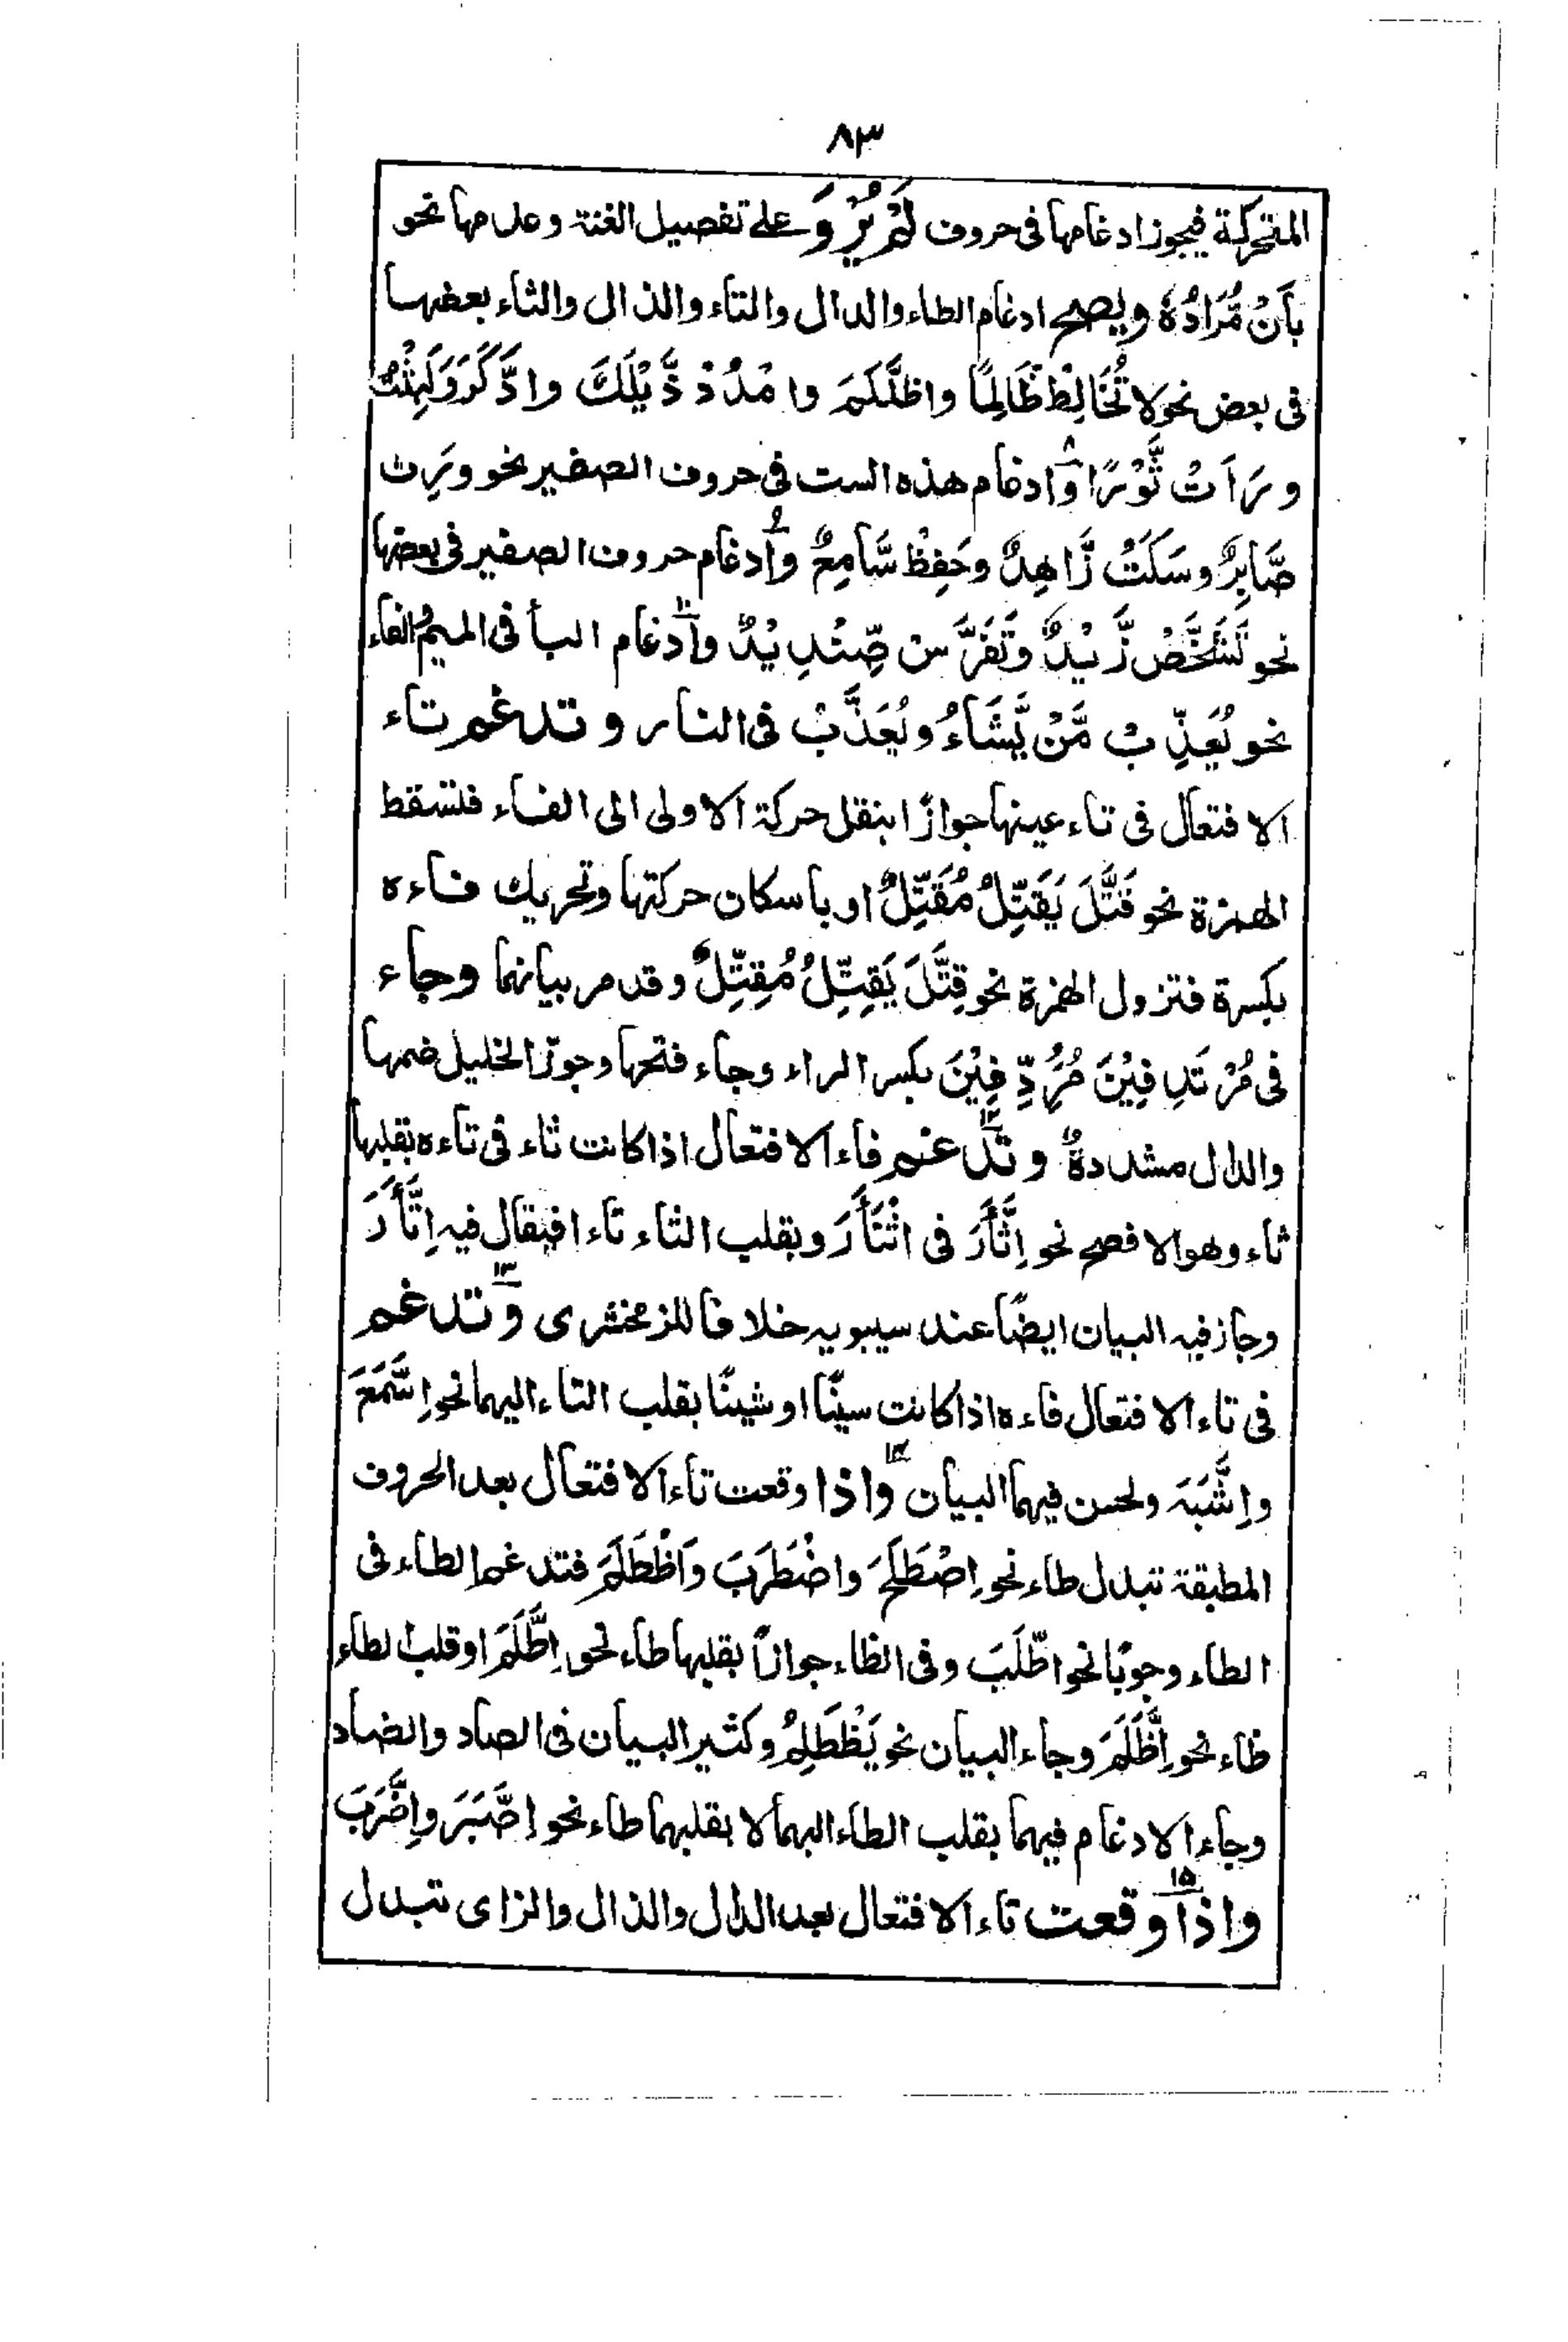 ٨٣
المتحركة فيجوز ادغامها فى حروف لَمْ يَرْوَ على تفصيل الغنة وعدمها نحو
بأَنْ مُّرَادُهٗ ويصح ادغام الطاء والدال والتاء والذال والثاء بعضها
فى بعض نحو لا تُخَالِطْ ظَّالِمًا واظَّلَمَ وامْدُدْ ذَّيْلَكَ وادَّكَرَ وَلَبِثْتُ
ورَأَتْ ثَّوْرًا و٨ادغام هذه الست فى حروف الصفير نحو وَرِثَ
صَّابِرٌ وسَكَتَتْ زَّاهِدٌ وحَفِظْ سَّامِعٌ و٩ادغام حروف الصفير فى بعضها
نحو تَشَخَّصْ زَّيْدٌ وتَفَرَّسْ صِّنْدِيْدٌ و١٠ادغام البأ فى الميم والفاء
نحو يُعَذِّبْ مَّنْ يَّشَاءُ ويُعَذَّبْ فى النار و تدغم تاء
الافتعال فى تاء عينها جوازًا بنقل حركة الاولى الى الفاء فتسقط
الهمزة نحو قَتَّلَ يَقَتِّلُ مُقَتِّلٌ او باسكان حركتها وتحريك فاءه
بكسرة فتزول الهمزة نحو قِتَّلَ يَقِتِّلُ مُقِتِّلٌ وقد مر بيانهما وجاء
فى مُرْتَدِفِيْنَ مُرُِدِّفِيْنَ بكسر الراء وجاء فتحها وجوّز الخليل ضمها
والدال مشددةٌ و ١٢تدغم فاء الافتعال اذا كانت ثاء فى تاءه بقلبها
ثاء وهو الافصح نحو اِثَّأَرَ فى اثْتَأَرَ وبقلب الثاء تاء افيقال فيه اِتَّأَرَ
وجاز فيه البيان ايضًا عند سيبويه خلافا للزمخشرى و١٣تدغم
فى تاء الافتعال فاءه اذا كانت سينًا او شينًا بقلب التاء اليهما نحو اِسَّمَعَ
واِشَّبَهَ ولحسن فيهما البيان ١٤واذا وقعت تاء الافتعال بعد الحروف
المطبقة تبدل طاء نحو اِصْطَلَحَ واضْطَرَبَ وَاظْطَلَمَ فتدغم الطاء فى
الطاء وجوبًا نحو اطَّلَبَ وفى الظاء جوازًا بقلبها طاء نحو اِطَّلَمَ او قلب الطاء
ظاء نحو اِظَّلَمَ وجاء البيان نحو يَظْطَلِمُ وكثير البيان فى الصاد والضاد
وجاء الادغام فيهما بقلب الطاء اليهما لا بقلبهما طاء نحو اِصَّبَرَ واِضَّرَبَ
١٥واذا وقعت تاء الافتعال بعد الدال والذال والزاى تبدل